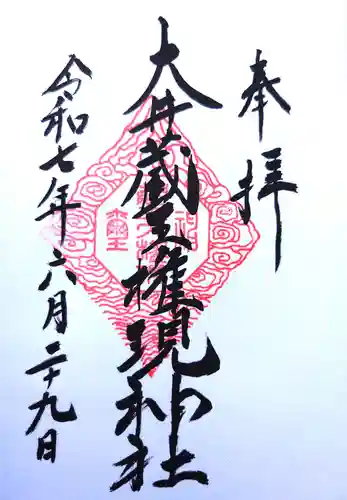 奉拝
大井蔵王権現神社
令和七年六月二十九日